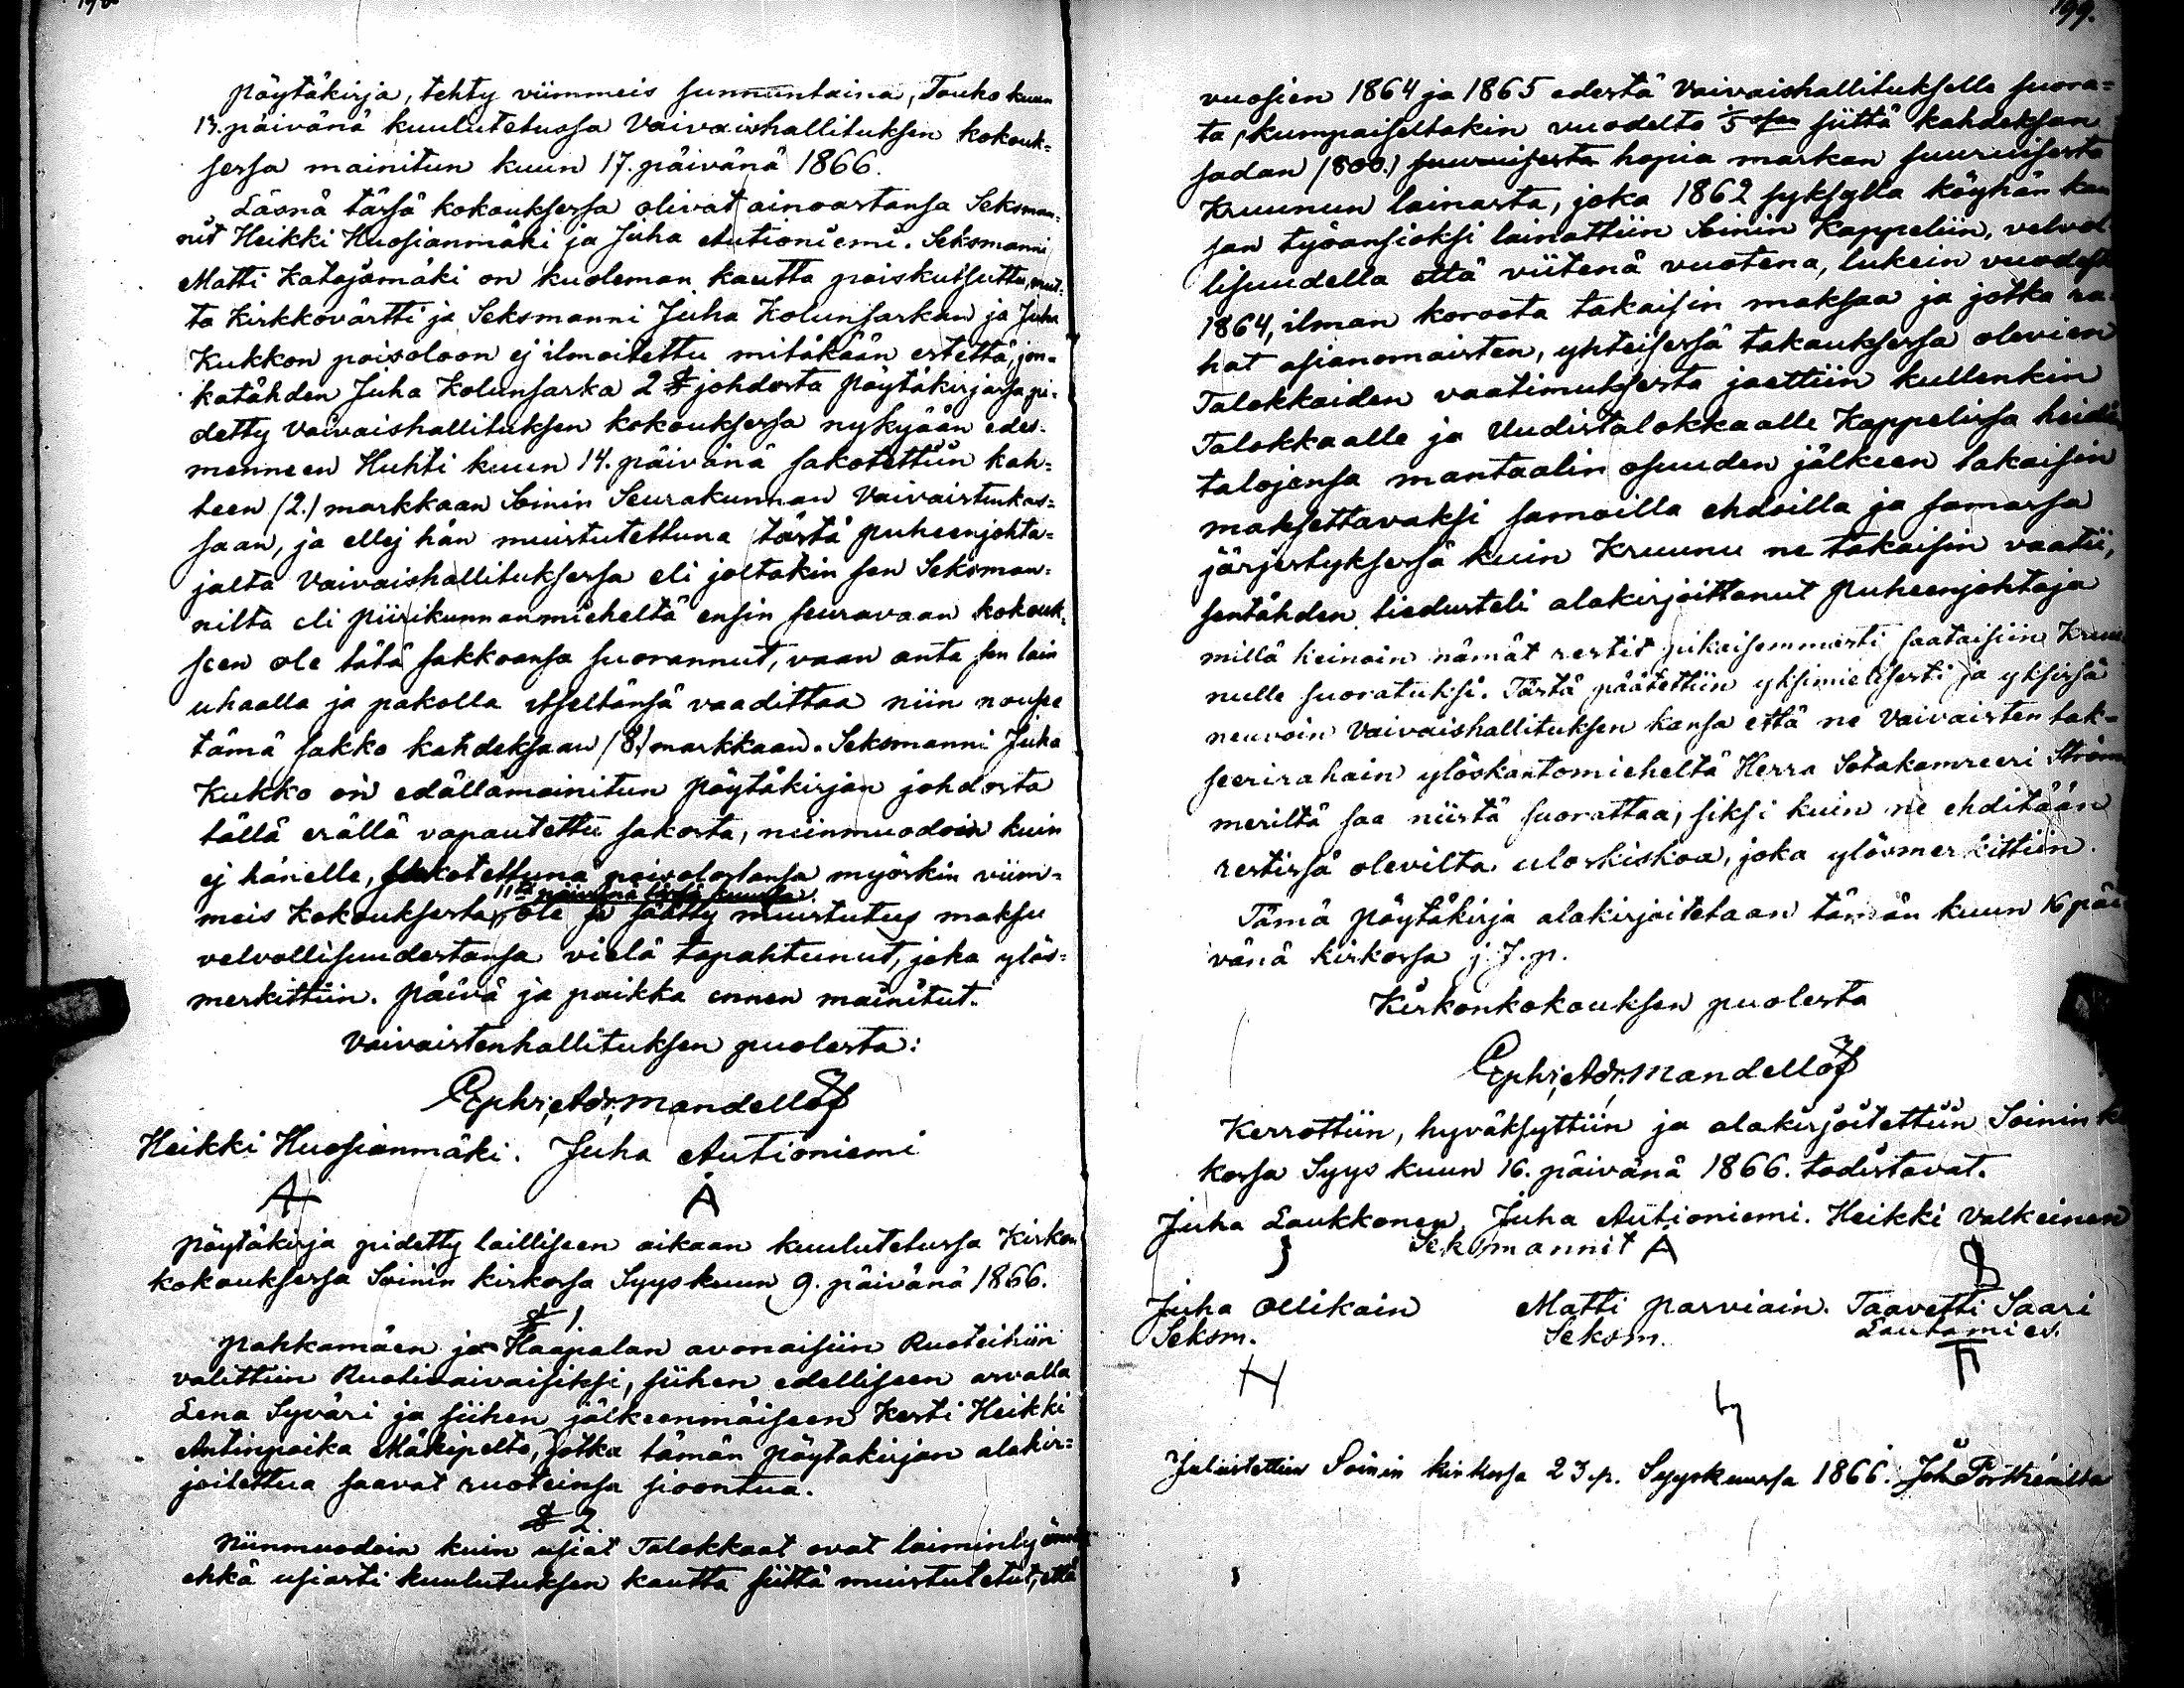 Pöytäkirja, tehty viimmeis sunnuntaina, Touko kuun
13. päivänä kuulutetussa Vaivaishallituksen kokouk-
sessa mainitun kuun 17. päivänä 1866.
Läsnä tässä kokouksessa olivat ainoastansa Seksman-
nit Heikki Huosianmäki ja Juha Autioniemi. Seksmanni
Matti Katajamäki on kuoleman kautta poiskutsuttu, mut-
ta Kirkkovärtti ja Seksmanni Juha Kolunsarkan ja Juha
Kukkon poisoloon ej ilmoitettu mitäkään estettä, jon-
katähden Juha Kolunsarka 2 § johdosta Pöytäkirjassa pi-
detty Vaivaishallituksen kokouksessa nykyään edes-
menneen Huhti kuun 14. päivänä sakotettiin kah-
teen (2.) markkaan Soinin Seurakunnan Vaivaistenkas-
saan, ja ellej hän muistutettuna tästä Puheenjohta-
jalta Vaivaishallituksessa eli joltakin sen Seksman-
nilta eli Piirikunnanmieheltä ensin seuravaan kokouk-
seen ole tätä sakkoansa suorannut, vaan anta sen lain
uhaalla ja pakolla itseltänsä vaadittaa niin noupe
tämä sakko kahdeksaan (8.) markkaan. Seksmanni Juha
Kukko on edällämainitun Pöytäkirjan johdosta
tällä erällä vapautettu sakosta, niinmuodoin kuin
ej hänelle, sakotettuna poisolostansa myöskin viim-
11ta päivänä tässä kuussa
meis Kokouksesta, ole se säätty muistutus maksu
velvollisuudestansa vielä tapahtunut, joka ylös-
merkittiin. Päivä ja paikka ennen mainitut.
Vaivaistenhallituksen puolesta:
Ephr. Adr. Mandellöf
Heikki Huosianmäki. Juha Autioniemi
Pöytäkirja pidetty lailliseen aikaan kuulutetussa Kirkon
kokouksessa Soinin kirkossa Syys kuun 9. päivänä 1866.
§ 1
Pahkamäen ja Haapalan avonaisiin Ruoteihin
valittiin Ruotivaivaisiksi, siihen edelliseen arvalla
Lena Syväri ja siihen jälkeenmäiseen Kesti Heikki
Antinpoika Mäkipelto, jotka tämän Pöytäkirjan alakir-
joitettua saavat ruoteinsa sioontua.
§ 2
Niinmuodoin kuin usiat Talokkaat ovat laiminlyöneet
ehkä usiasti kuulutuksen kautta siittä muistutetut, että
199.
vuosien 1864 ja 1865 edestä Vaivaishallitukselle suora-
ta, kumpaiseltakin vuodelta 1/5 osan siittä kahdeksan
sadan (800.) suuruisesta hopia markan suuruisesta
Kruunun lainasta, joka 1862 syksyllä köyhän kan
san työansioksi lainattiin Soinin Kappeliin, velvol
lisuudella että viitenä vuotena, lukein vuodesta
1864, ilman korosta takaisin maksaa ja jotka ra-
hat asianomaisten, yhteisessä takauksessa olevien
Talokkaiden vaatimuksesta jaettiin kullenkin
Talokkaalle ja Uudistalokkaalle Kappelissa heidän
talojensa mantaalin osuuden jälkeen takaisin
maksettavaksi samoilla ehdoilla ja samassa
järjestyksessä kuin Kruunu ne takaisin vaatii,
sentähden tiedusteli alakirjoittanut Puheenjohtaja
millä keinoin nämät restit pikaisemmasti saataisiin Kruu
nulle suoratuksi. Tästä päätettiin yksimielisesti ja yksissä
neuvoin Vaivaishallituksen kansa että ne Vaivaisten tak-
seerirahain ylöskantomieheltä Herra Sotakamreeri Ström
meriltä saa niistä suorattaa, siksi kuin ne ehditään
restissä olevilta uloskiskoa, joka ylösmerkittiin.
Tämä Pöytäkirja alakirjoitetaan tämän kuun 16 päi
vänä kirkossa j. J. p.
Kirkonkokouksen puolesta
Ephr. Adr. Mandellöf
Kerrottiin, hyväksyttiin ja alakirjoitettiin Soinin kir
kossa Syys kuun 16. päivänä 1866. todistavat.
Juha Laukkonen. Juha Autioniemi. Heikki Valkeinen
Seksmannit
Juha Ollikain Matti Parviain. Taavetti Saari
Seksm. Seksm. Lautamies.
Julistettiin Soinin kirkossa 23 p. Syyskuussa 1866.